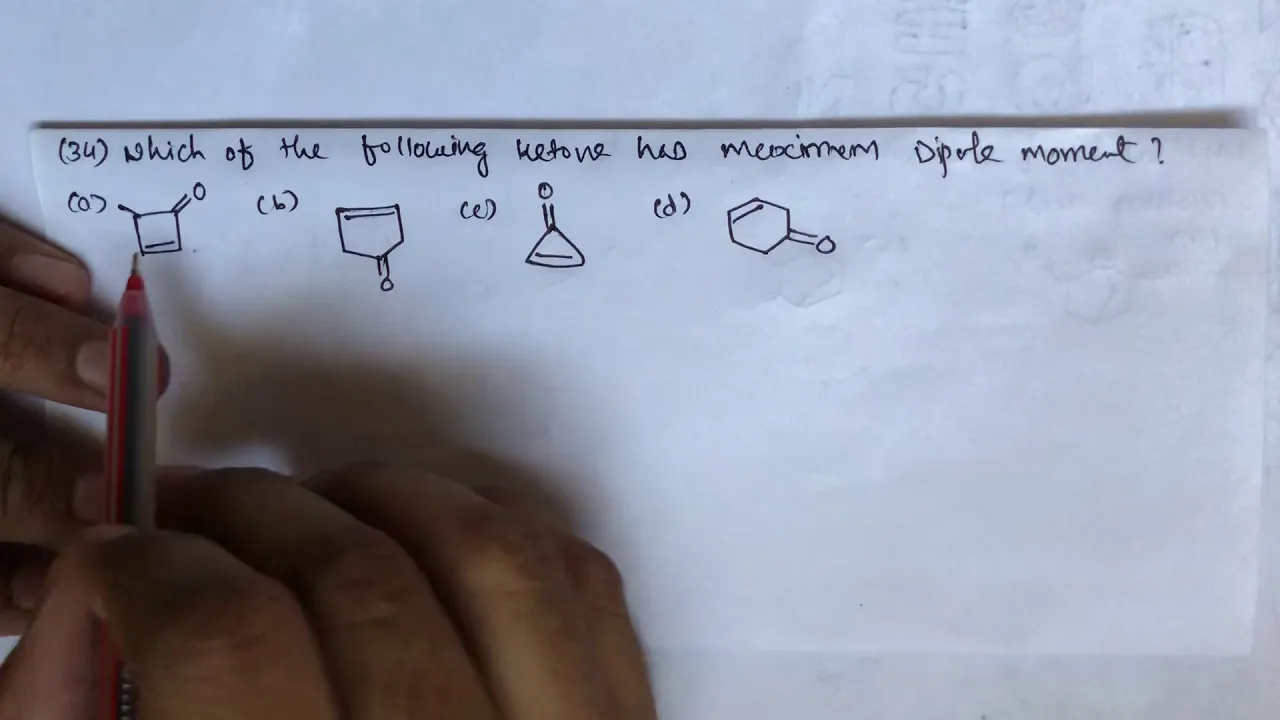 (34) which of the following ketone has meximem Dipole moment?
(a) O (b) O (c) O (d) O